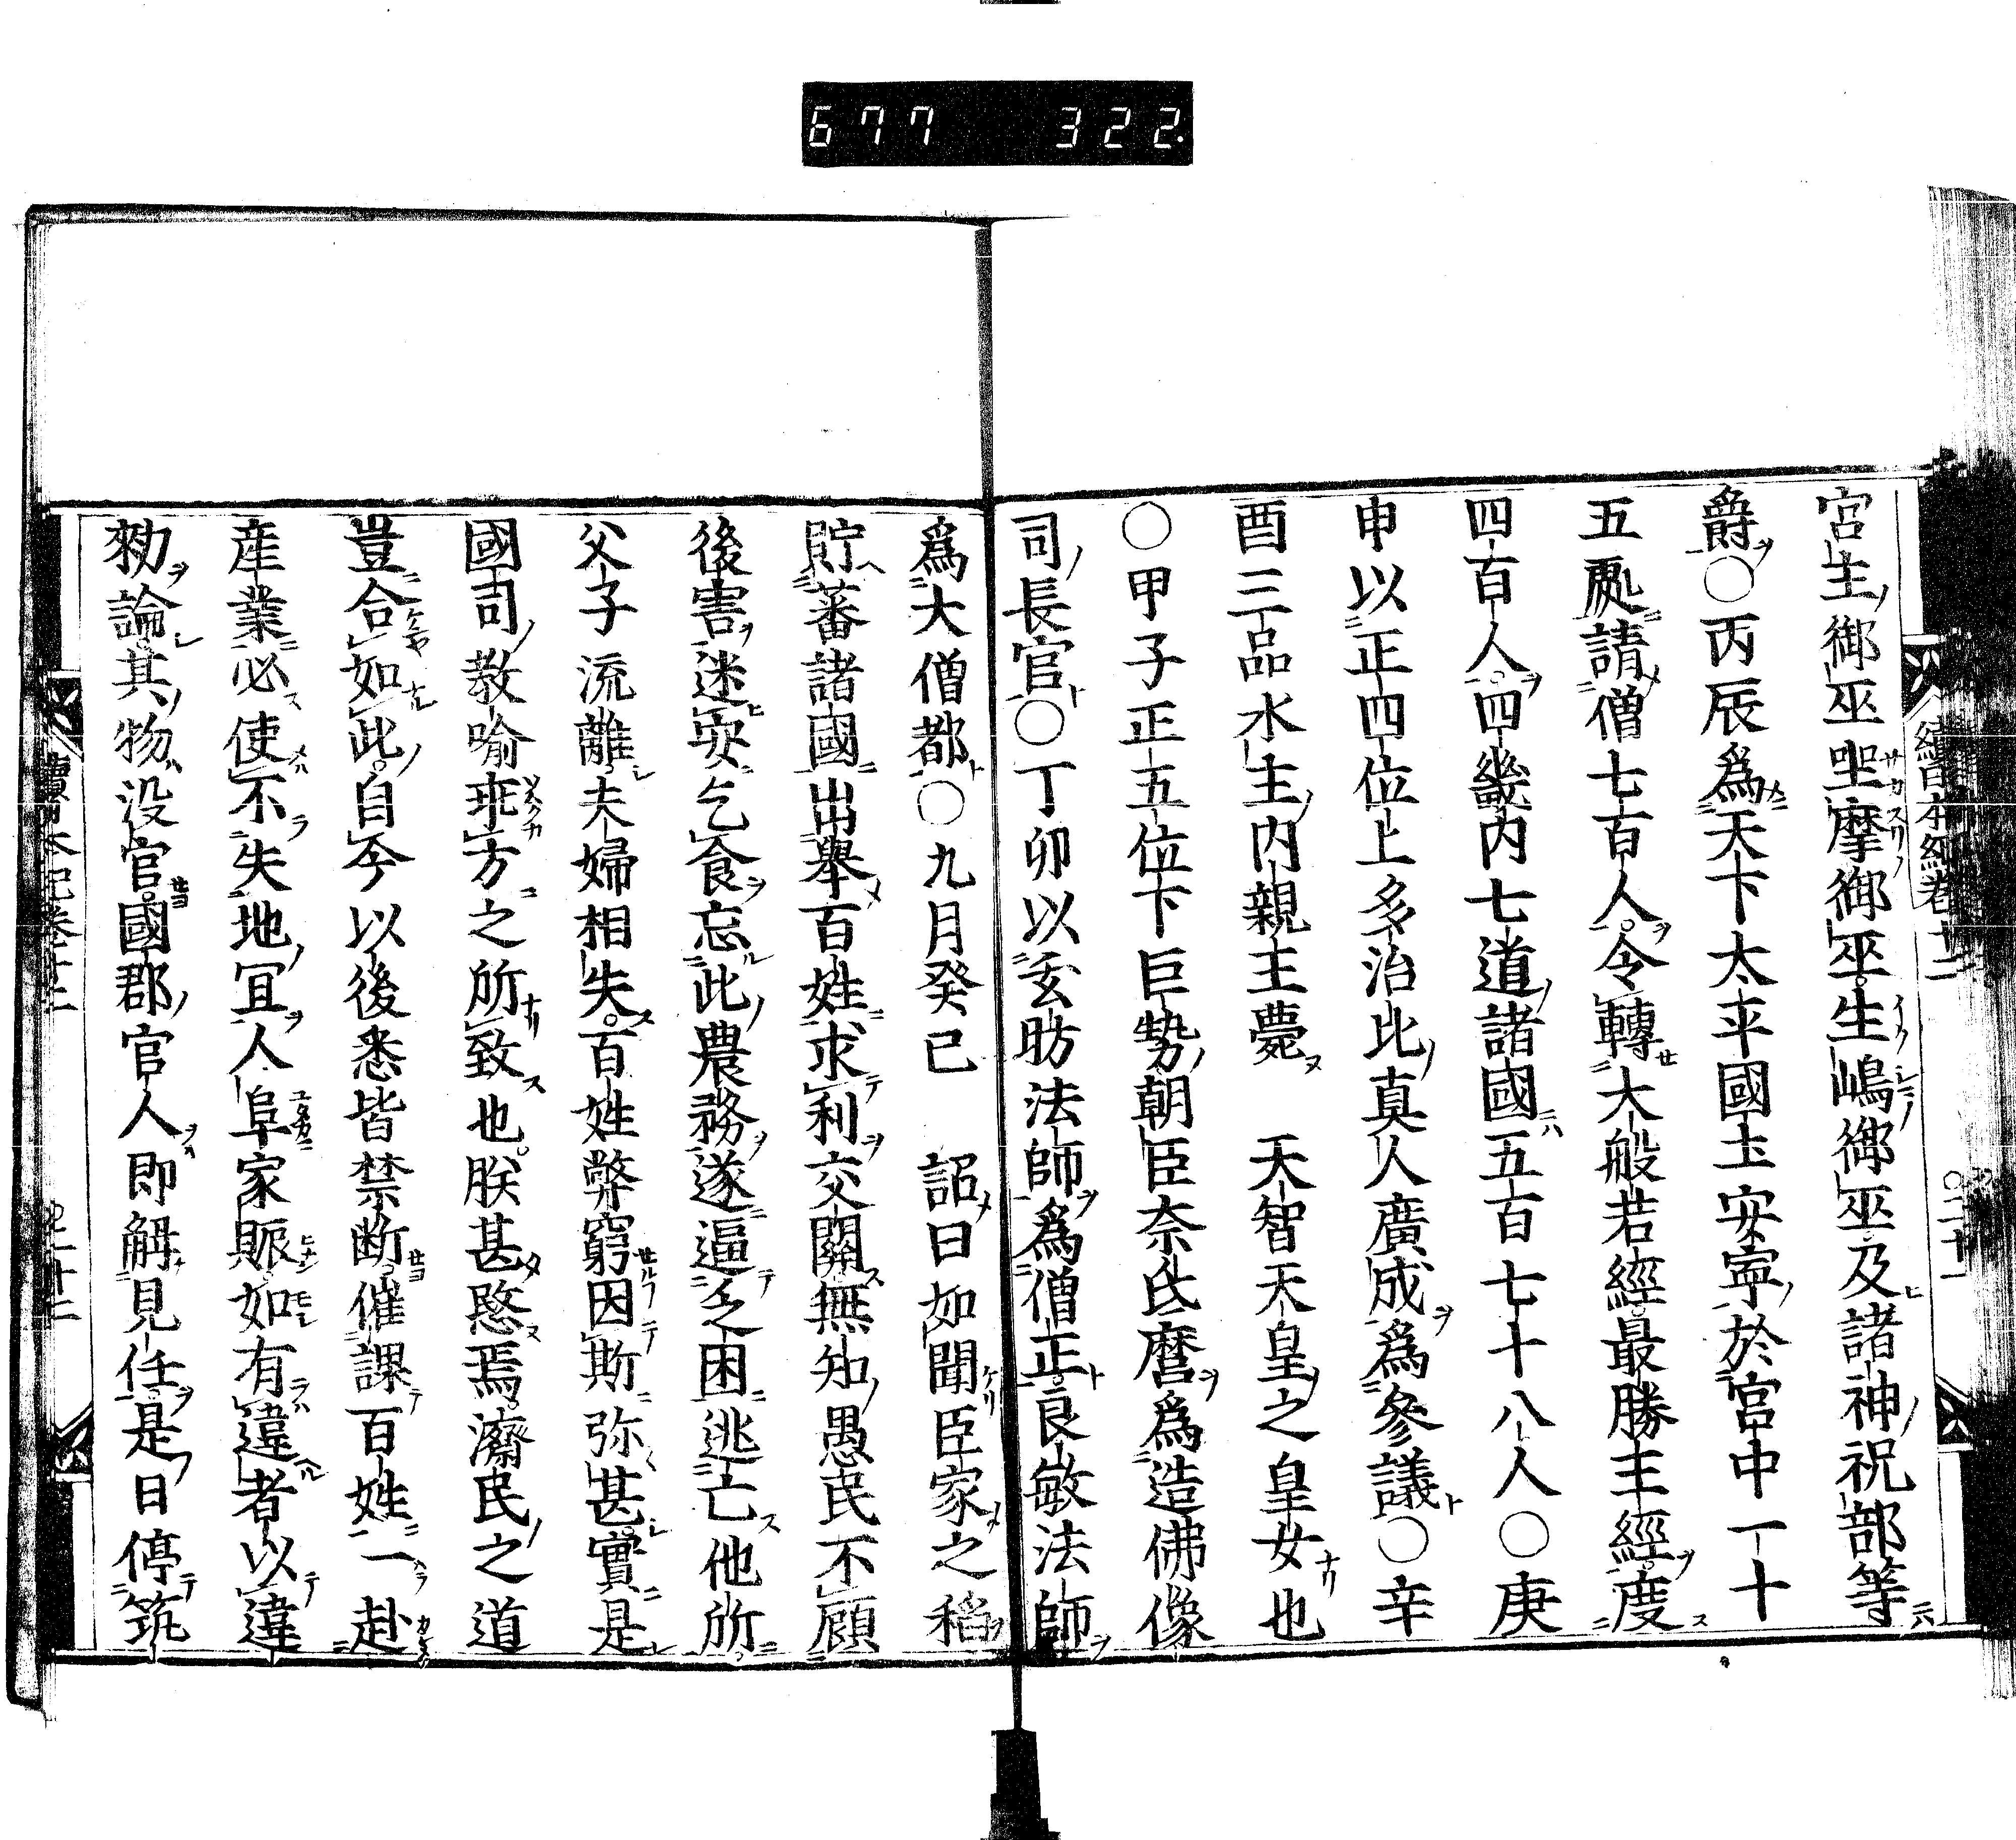 677 322.
續日本紀卷十二
宮主御巫㘴摩御巫生嶋御巫及諸神祝部等
爵○丙辰爲天下太平國土安寧於宮中一十
五處請僧七百人令轉大般若經最勝王經度
四百人四畿内七道諸國五百七十八人○庚
申以正四位上多治比真人廣成爲參議○辛
酉三品水主内親王薨 天智天皇之皇女也
○甲子正五位下巨勢朝臣奈氐麿爲造佛像
司長官○丁卯以玄昉法師爲僧正良敏法師
爲大僧都○九月癸巳 詔曰如聞臣家之稻
貯蕃諸國出舉百姓求利交關無知愚民不顧
後害迷安乞食忘此農務遂逼乏困逃亡他所
父子流離夫婦相失百姓弊窮因斯弥甚實是
國司教喻乖方之所致也朕甚愍焉濟民之道
豈合如此自今以後悉皆禁断催課百姓一赴
産業必使不失地宜人阜家賑如有違者以違
勑論其物没官國郡官人即解見任是日停筑
續日本紀卷十二